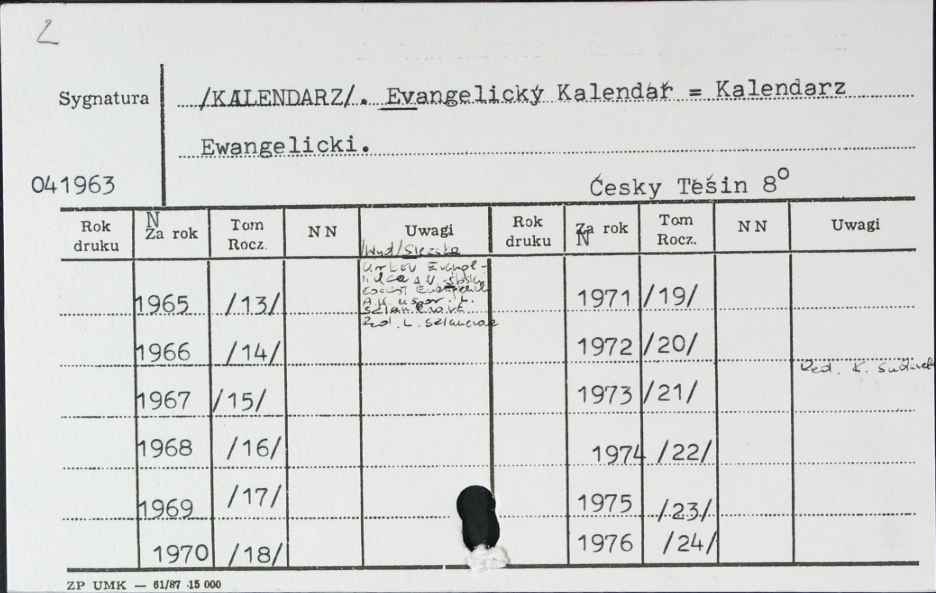 2
Sygnatura /KALENDARZ/. Evangelický Kalendář = Kalendarz
Ewangelicki.
041963 Česky Těšin 8°
Rok druku N Za rok Tom Rocz. N N Uwagi Rok druku Za rok N Tom Rocz. N N Uwagi
/Wyd/
1965 /13/ 1971 /19/
A.V.
Red. L.
1966 /14/ 1972 /20/
Red. K.
1967 /15/ 1973 /21/
1968 /16/ 1974 /22/
1969 /17/ 1975 /23/
1970 /18/ 1976 /24/
ZP UMK — 61/87 15 000